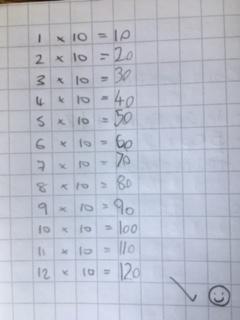 1 × 10 = 10
2 × 10 = 20
3 × 10 = 30
4 × 10 = 40
5 × 10 = 50
6 × 10 = 60
7 × 10 = 70
8 × 10 = 80
9 × 10 = 90
10 × 10 = 100
11 × 10 = 110
12 × 10 = 120